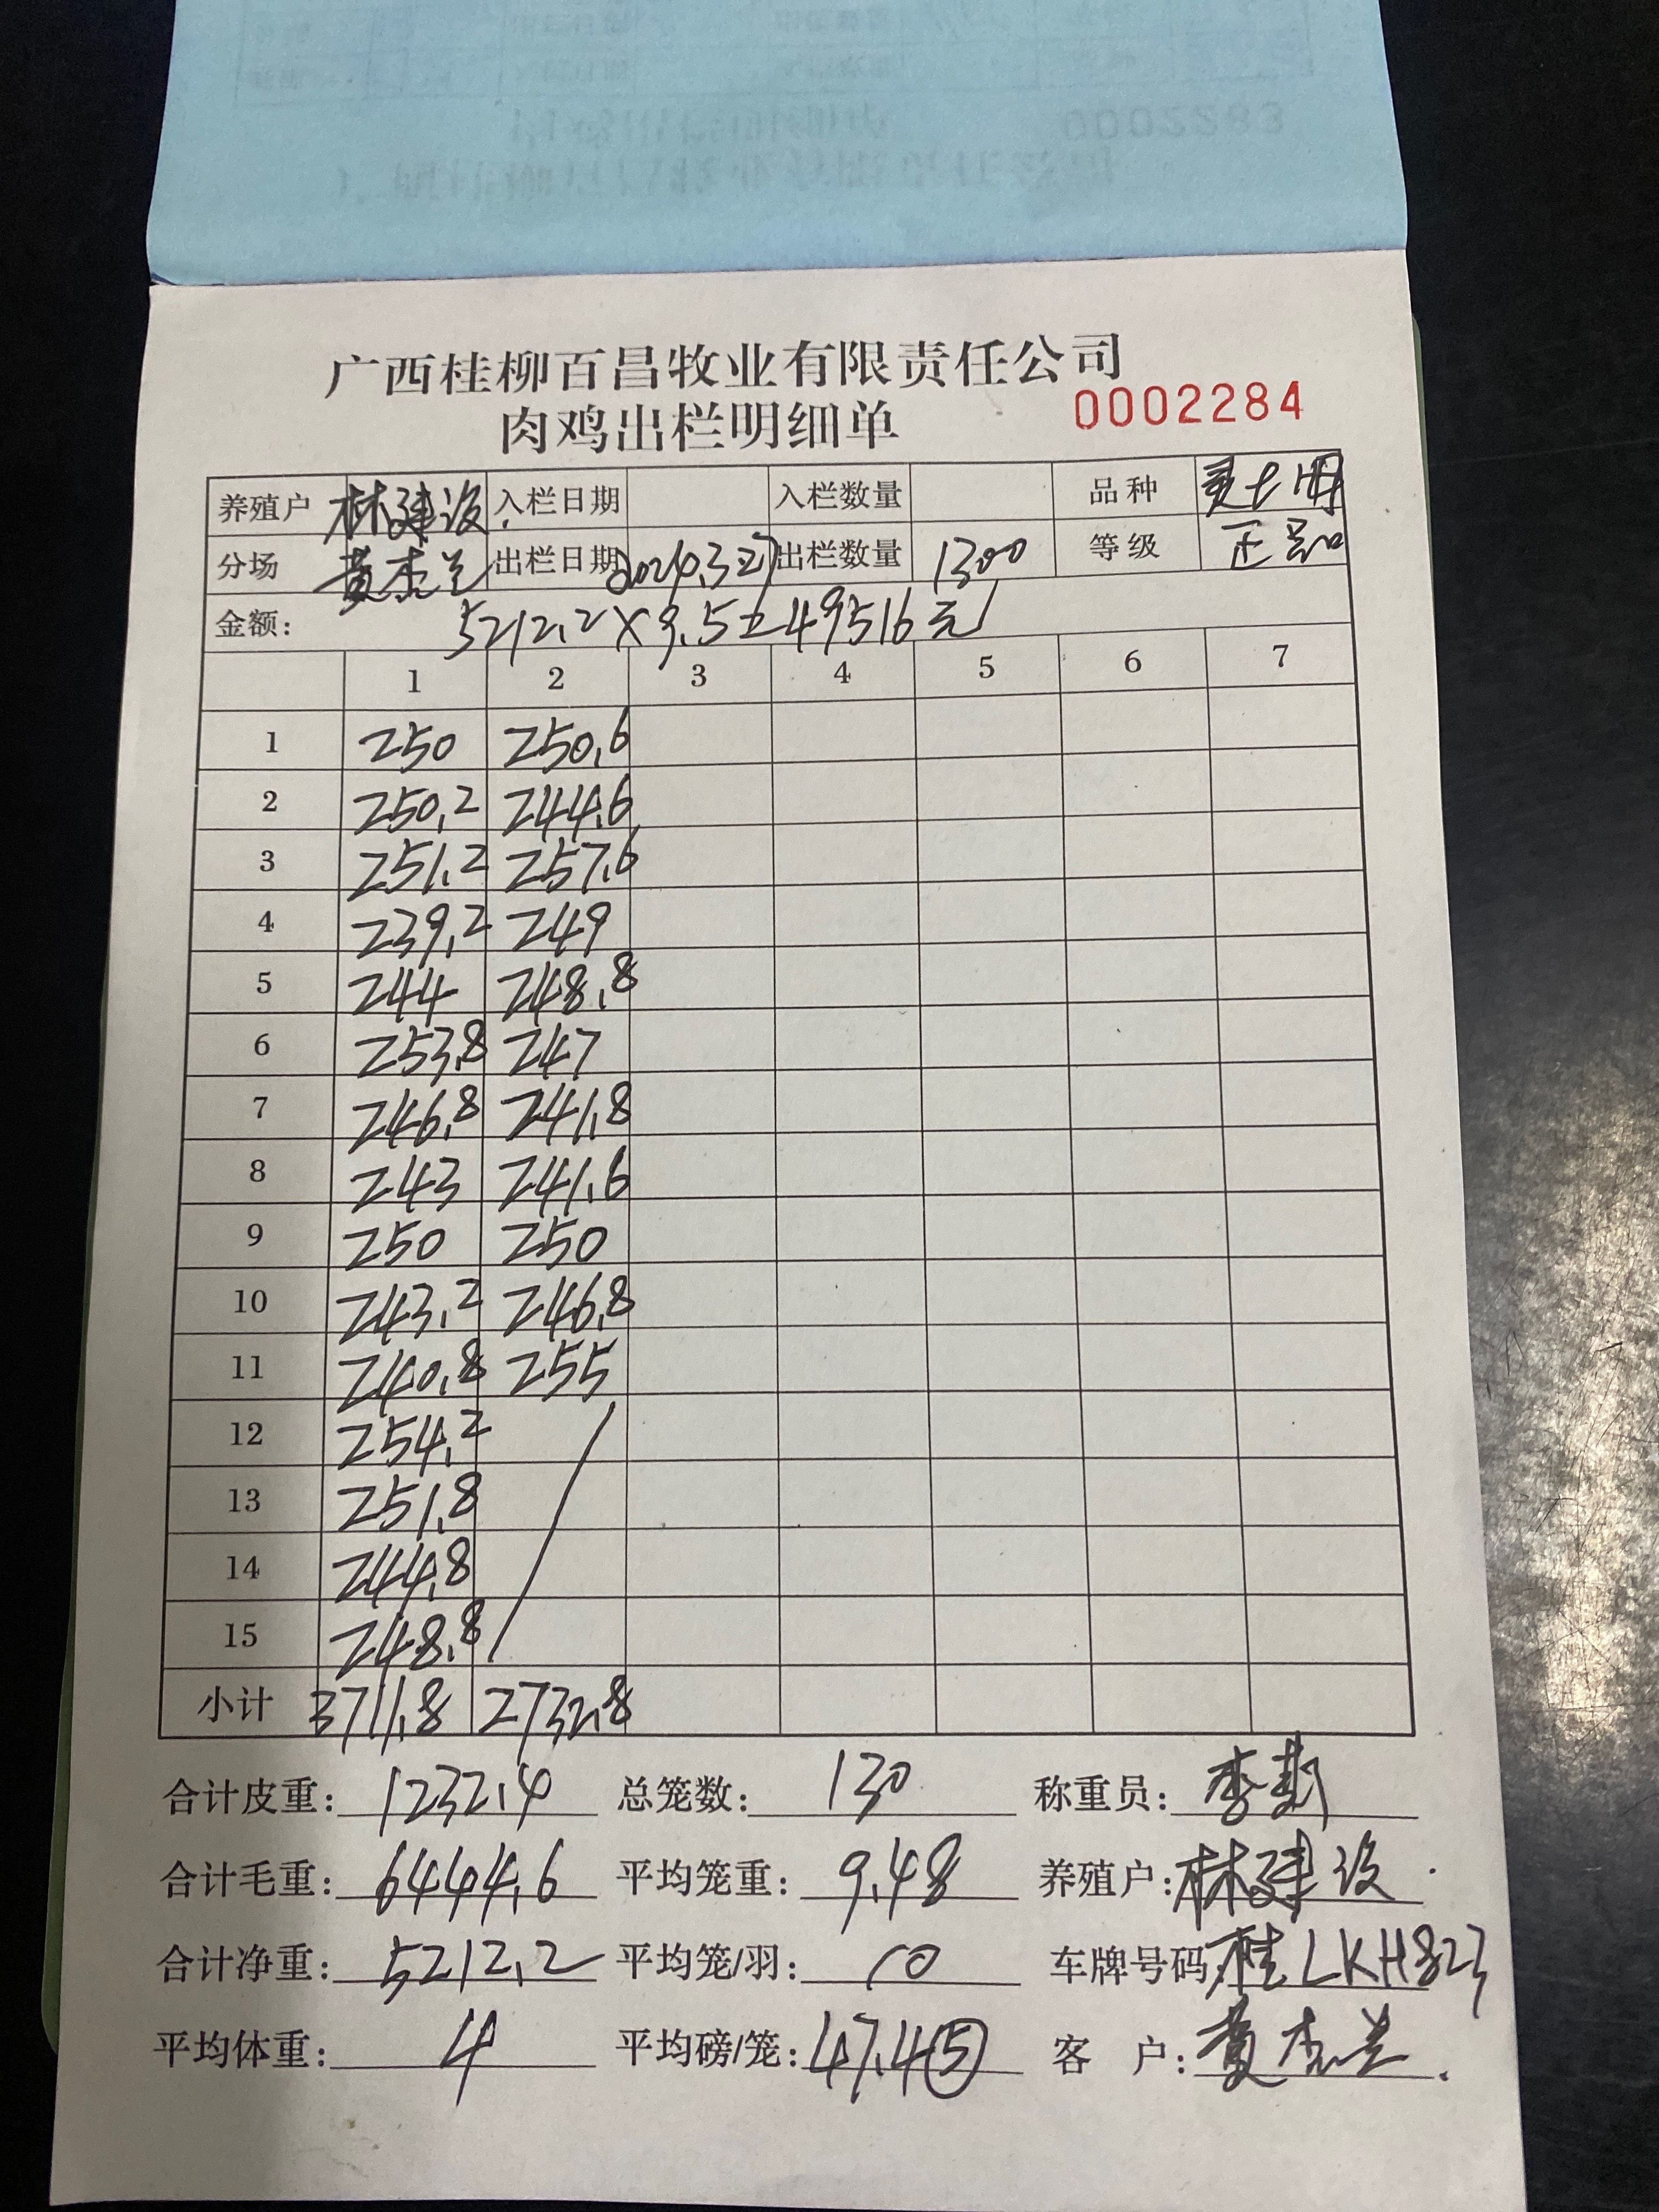 广西桂柳百昌牧业有限责任公司
肉鸡出栏明细单 0002284
养殖户 林建设 入栏日期 入栏数量 品种
分场 黄杰兰 出栏日期 2024.3.27 出栏数量 1300 等级 正品
金额: 5212.2×9.5=49516元
1 2 3 4 5 6 7
1 250 250.6
2 250.2 244.6
3 251.2 257.6
4 239.2 249
5 244 248.8
6 253.8 247
7 246.8 241.8
8 243 241.6
9 250 250
10 243.2 246.8
11 240.8 255
12 254.2
13 251.8
14 244.8
15 248.8
小计 3711.8 2732.8
合计皮重: 1232.4 总笼数: 130 称重员: 李
合计毛重: 6444.6 平均笼重: 9.48 养殖户: 林建设
合计净重: 5212.2 平均笼/羽: 10 车牌号码: 桂LKH823
平均体重: 4 平均磅/笼: 47.4⑤ 客 户: 黄杰兰